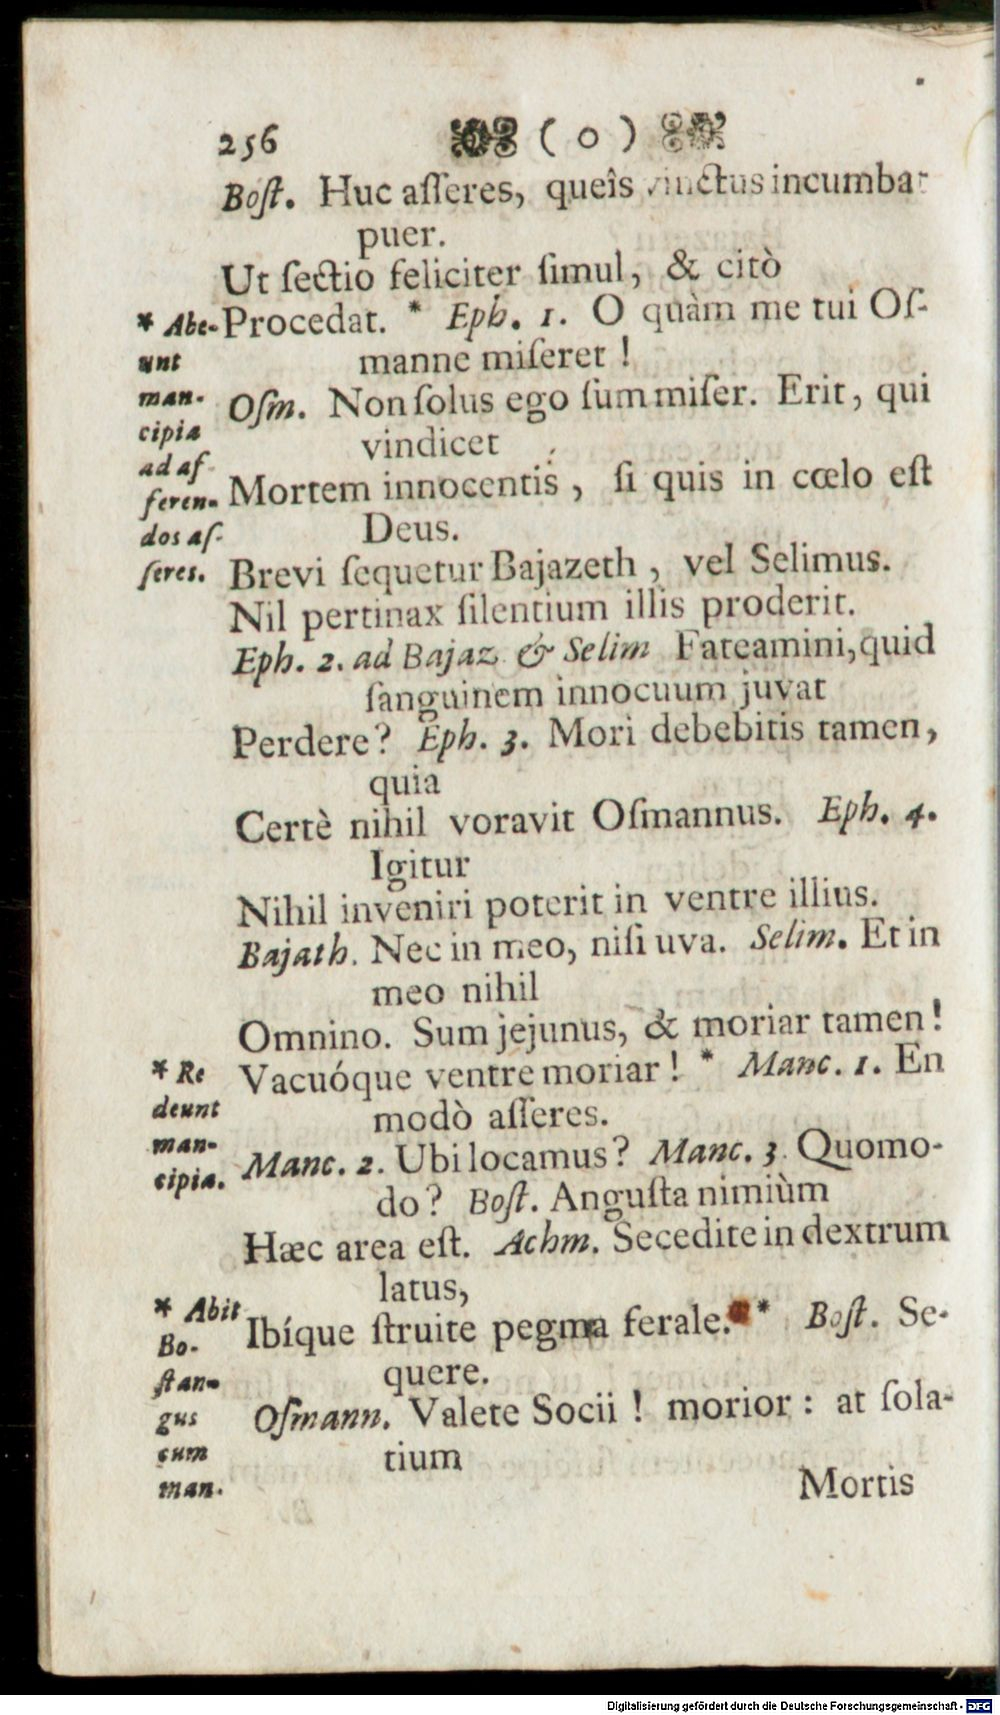 256 ( o )
Boſt. Huc aſſeres, queîs vinctus incumbat
puer.
Ut ſectio feliciter ſimul, & citò
* Abe- Procedat. * Eph. 1. O quàm me tui Oſ-
unt manne miſeret !
man-
Oſm. Non ſolus ego ſum miſer. Erit, qui
cipia vindicet
ad aſ-
feren- Mortem innocentis, ſi quis in cœlo eſt
dos aſ- Deus.
ſeres. Brevi ſequetur Bajazeth, vel Selimus.
Nil pertinax ſilentium illis proderit.
Eph. 2. ad Bajaz. & Selim Fateamini, quid
ſanguinem innocuum juvat
Perdere? Eph. 3. Mori debebitis tamen,
quia
Certè nihil voravit Oſmannus. Eph. 4.
Igitur
Nihil inveniri poterit in ventre illius.
Bajath. Nec in meo, niſi uva. Selim. Et in
meo nihil
Omnino. Sum jejunus, & moriar tamen!
* Re Vacuóque ventre moriar! * Manc. 1. En
deunt modò aſſeres.
man-
cipia. Manc. 2. Ubi locamus? Manc. 3. Quomo-
do? Boſt. Anguſta nimiùm
Hæc area eſt. Achm. Secedite in dextrum
latus,
* Abit Ibíque ſtruite pegma ferale. * Boſt. Se-
Bo-
ſtan- quere.
gus Oſmann. Valete Socii! morior: at ſola-
cum tium
man. Mortis
Digitalisierung gefördert durch die Deutsche Forschungsgemeinschaft - DFG